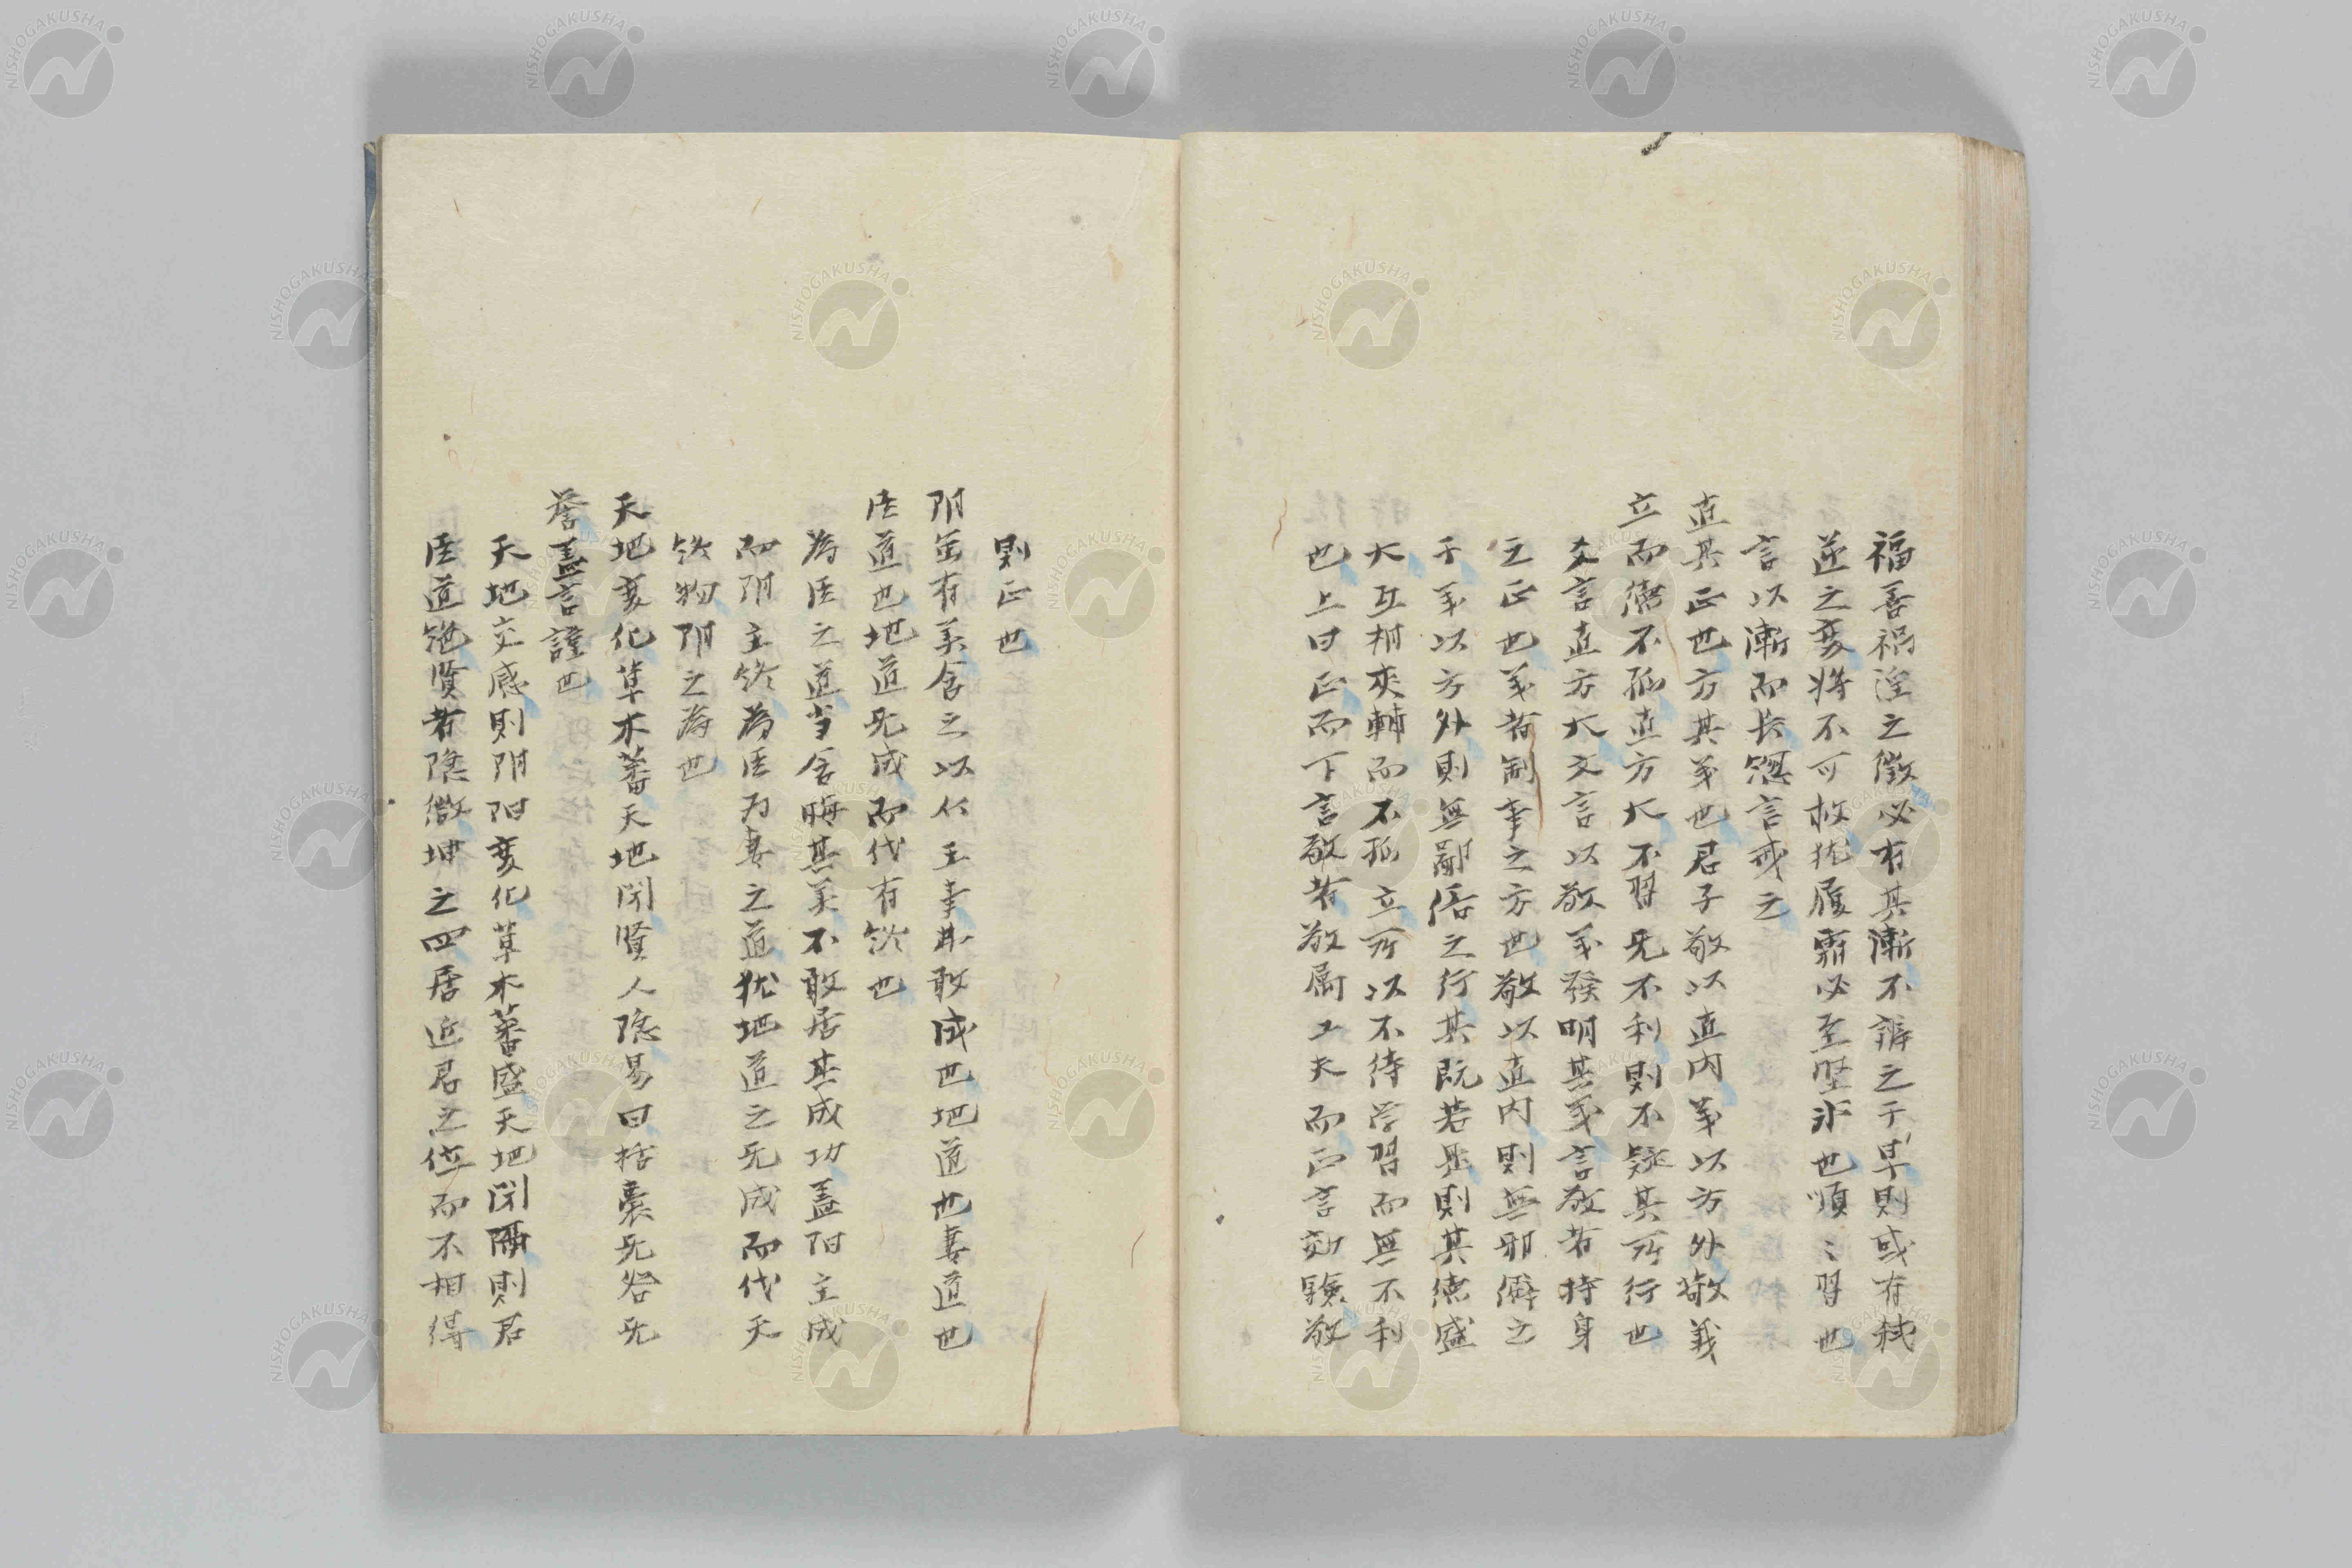 福善禍淫之徵必有其漸不辨之于早則或有弑
逆之変將不可救猶履霜必至堅氷也順〻習也
言以漸而長慎言戒之
直其正也方其义也君子敬以直内义以方外敬義
立而德不孤直方大不習无不利則不疑其所行也
文言直方大文言以敬义發明其义言敬者持身
之正也义者制事之方也敬以直内則無邪僻之
于义以方外則無鄙倍之行其既若是則其德盛
大互相夾輔而不孤立所以不待学習而無不利
也上曰正而下言敬者敬属工夫而正言効驗敬
則正也
阴虽有美含之以从王事弗敢成也地道也妻道也
臣道也地道无成而代有終也
為臣之道当含晦其美不敢居其成功蓋阳主成
而阴主終為臣为妻之道犹地道之无成而代天
終物阴之為也
天地変化草木蕃天地闭賢人隐易曰括囊无咎无
誉蓋言謹也
天地交感則阴阳変化草木蕃盛天地闭隔則君
臣道絶賢者隐微坤之四居近君之位而不相得
NISHOGAKUSHA